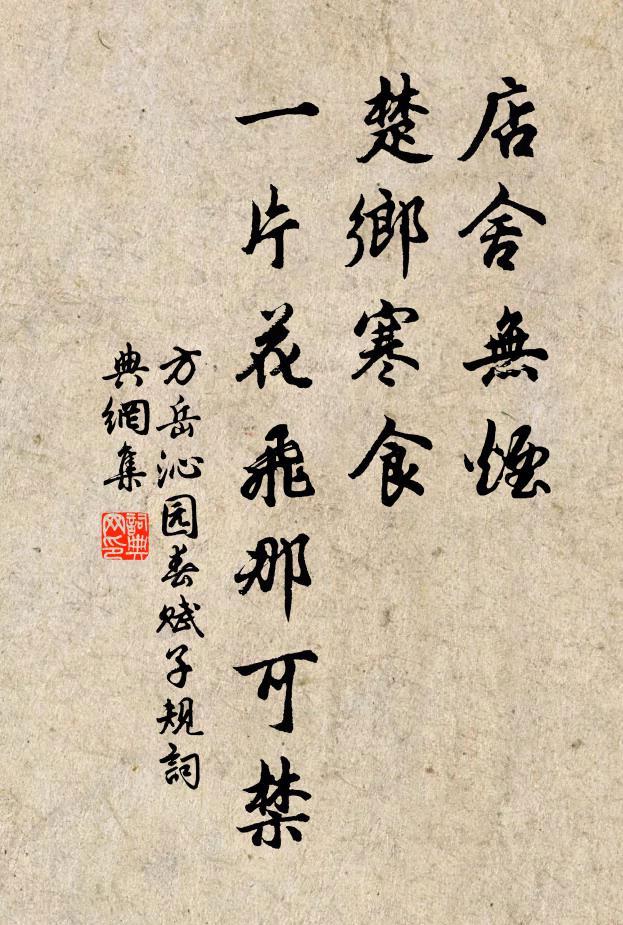 店舍無煙
楚鄉寒食
一片花飛那可禁
方岳沁园春赋子规詞
典網集
詞典
网印